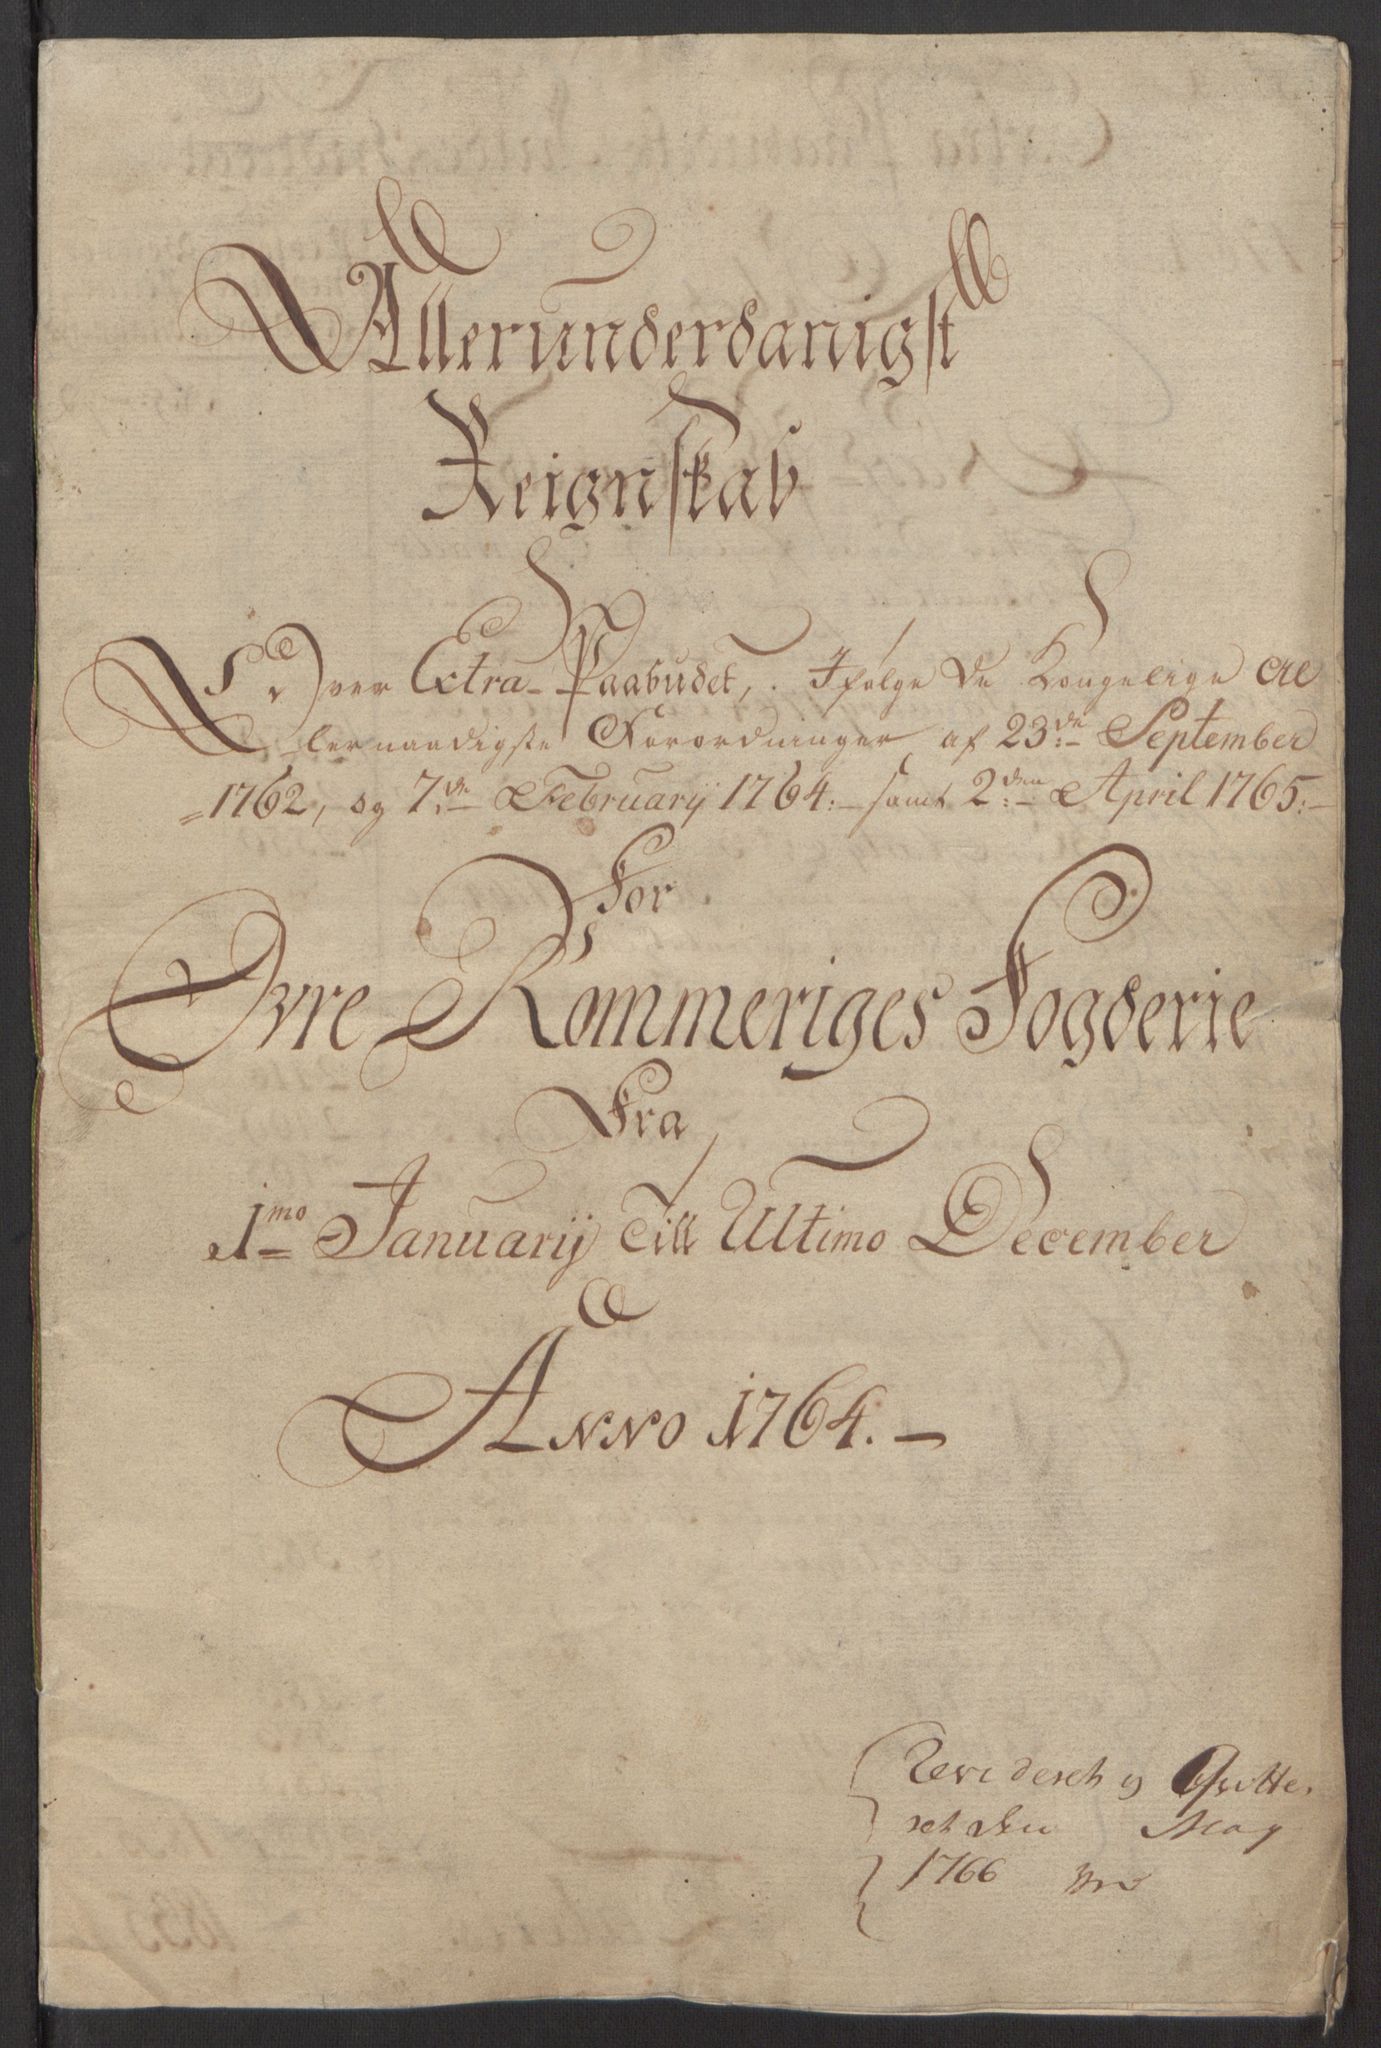 Allerunderdanigst
Reignskab
Over Extra-Paabudet, Ifølge De Kongelige All
ernaadigste Forordninger af 23de September
1762, og 7de Februarij 1764. samt 2den April 1765.
For
Øvre Rommeriges Fogderie
Fra
1mo Januarij Till Ultimo December
Anno 1764.
Revideret og Qvitte
ret den May
1766